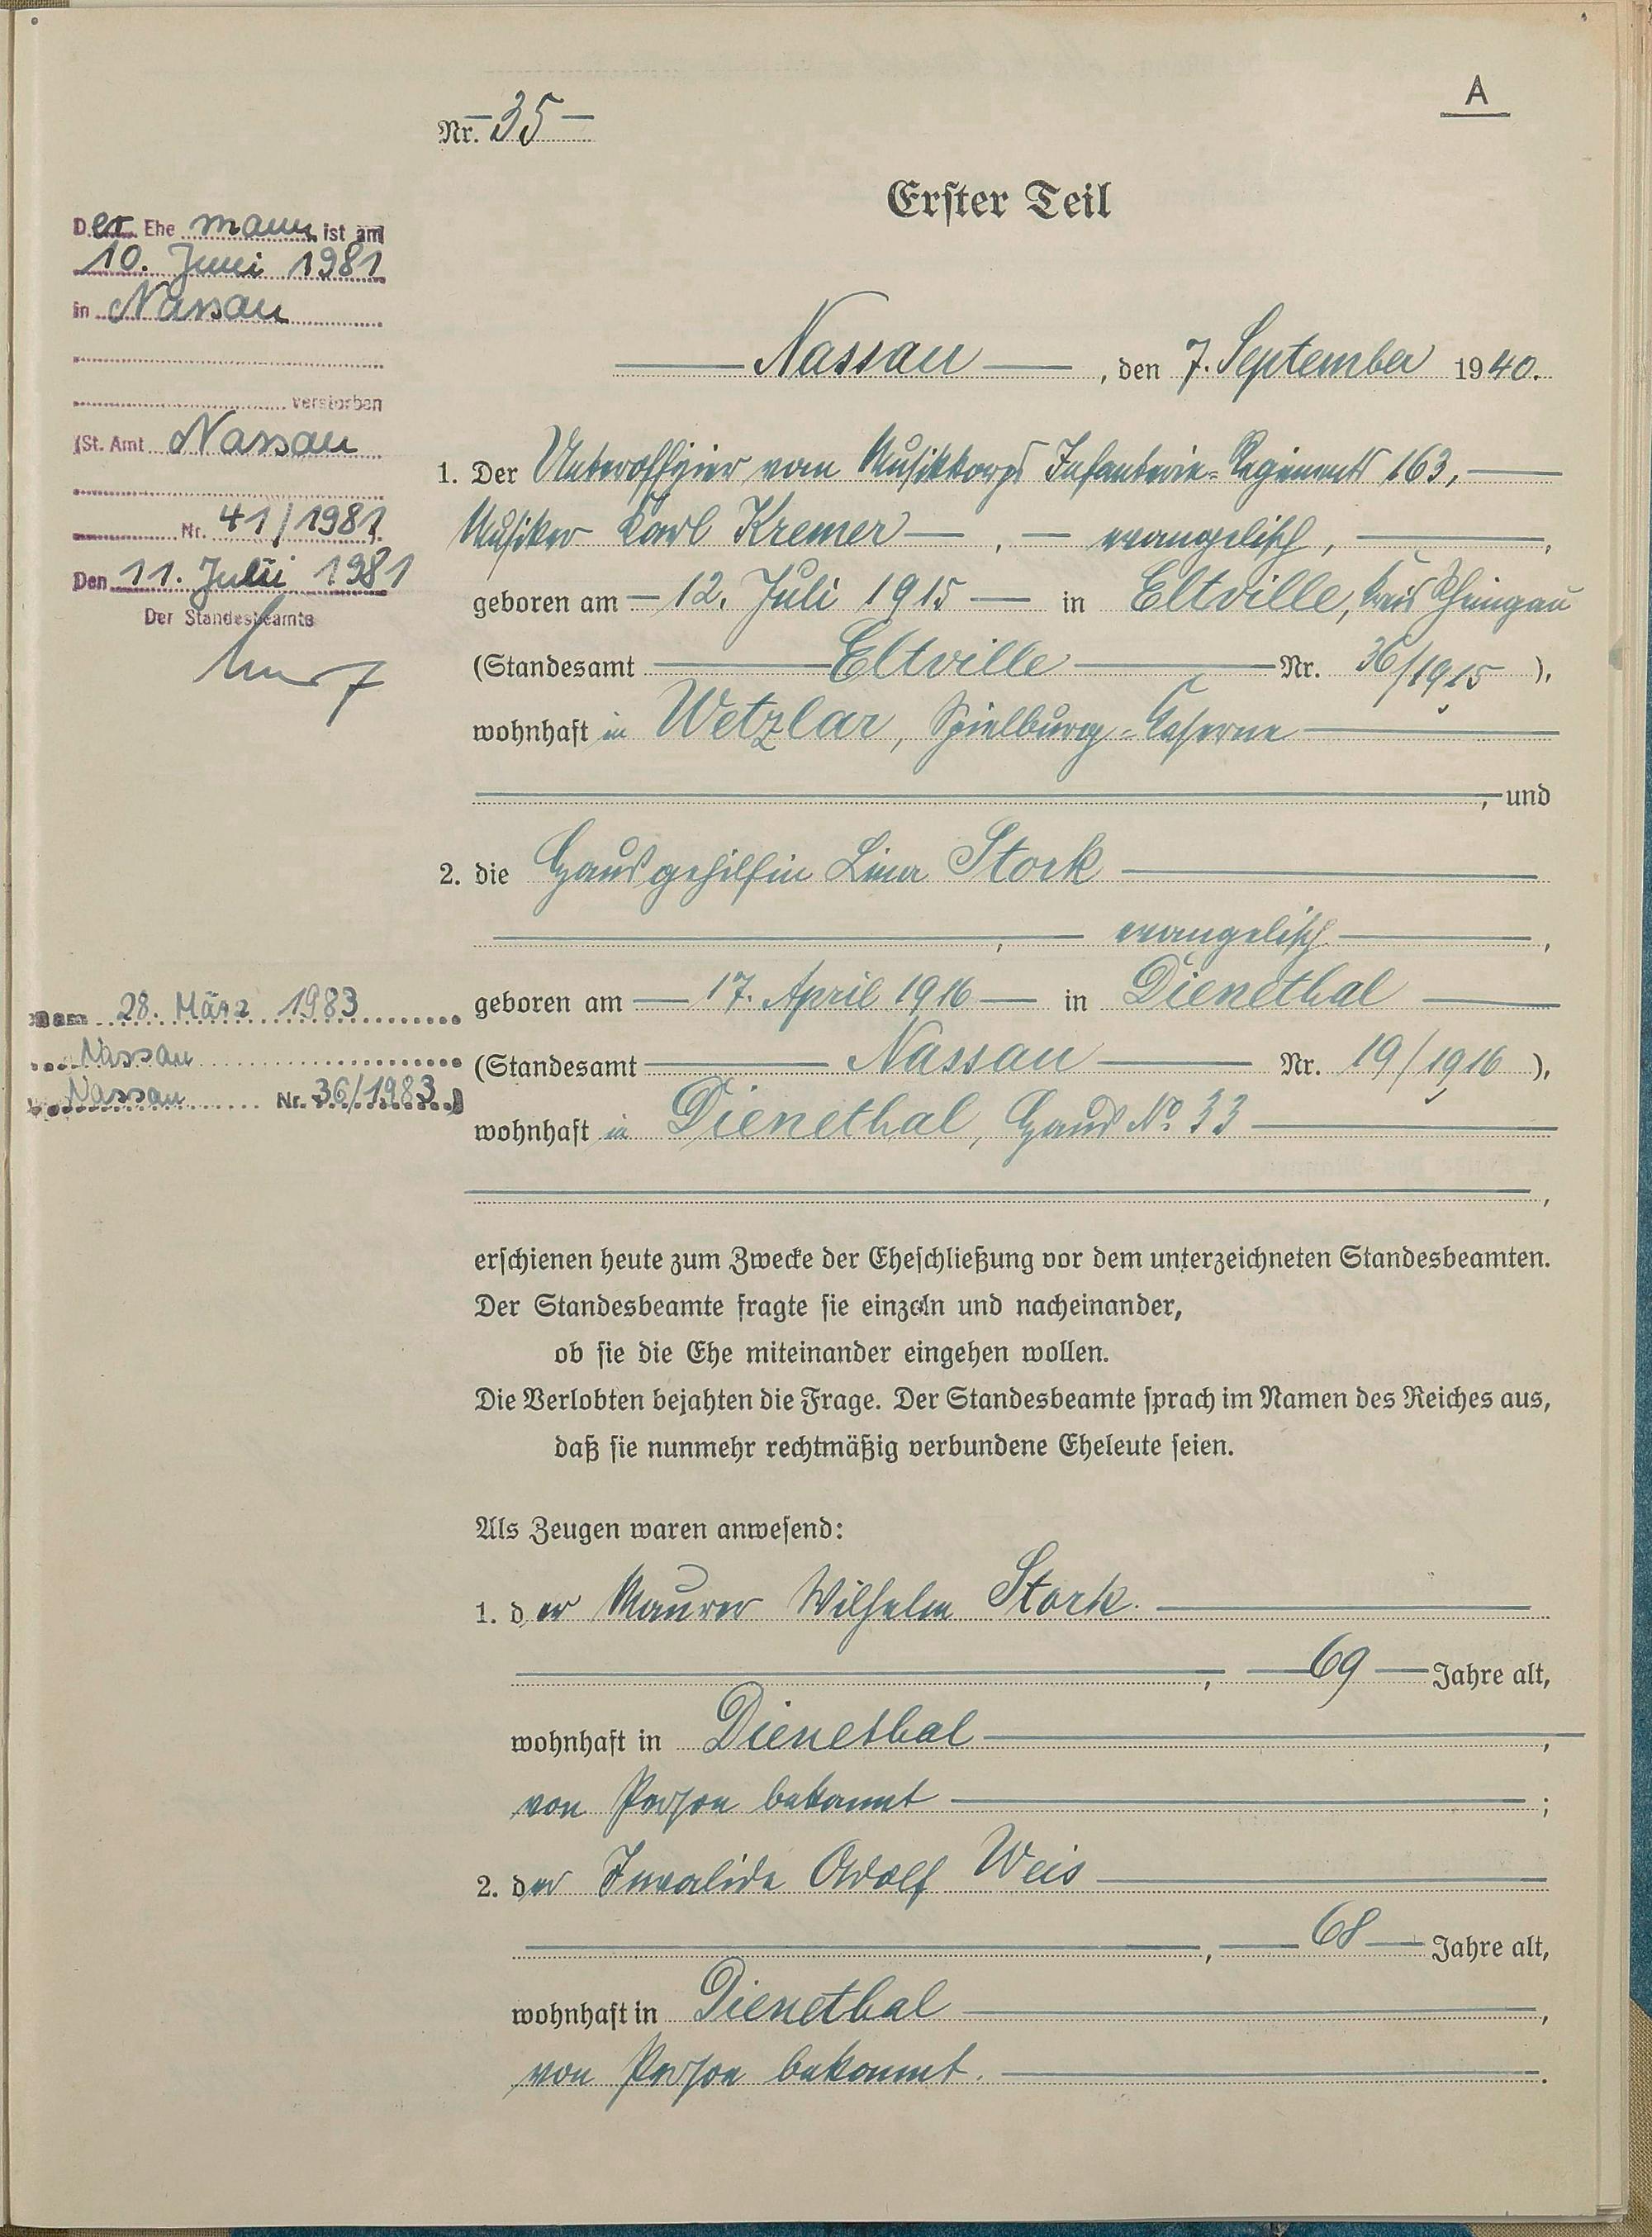 A
Nr. 35
Erster Teil
Der Ehe mann ist am
10. Juni 1981
in Nassau
verstorben
(St. Amt Nassau
Nr. 41/1981
Den 11. Julii 1981
Der Standesbeamte
Nassau, den 7. September 1940.
1. Der Unteroffizier vom Musikkorps Infanterie-Regiments 163,
Musiker Karl Kremer, evangelisch,
geboren am 12. Juli 1915 in Eltville, Kreis Rheingau
(Standesamt Eltville Nr. 36/1915),
wohnhaft in Wetzlar, Spielburg-Kaserne
, und
2. die Hausgehilfin Lina Stork
, evangelisch,
geboren am 17. April 1916 in Dienethal
(Standesamt Nassau Nr. 19/1916),
wohnhaft in Dienethal, Haus No. 33
,
am 28. März 1983
Nassau
Nassau Nr. 36/1983)
erschienen heute zum Zwecke der Eheschließung vor dem unterzeichneten Standesbeamten.
Der Standesbeamte fragte sie einzeln und nacheinander,
ob sie die Ehe miteinander eingehen wollen.
Die Verlobten bejahten die Frage. Der Standesbeamte sprach im Namen des Reiches aus,
daß sie nunmehr rechtmäßig verbundene Eheleute seien.
Als Zeugen waren anwesend:
1. der Maurer Wilhelm Stork.
, 69 Jahre alt,
wohnhaft in Dienethal,
von Person bekannt;
2. der Invalide Adolf Weis
, 68 Jahre alt,
wohnhaft in Dienethal,
von Person bekannt.